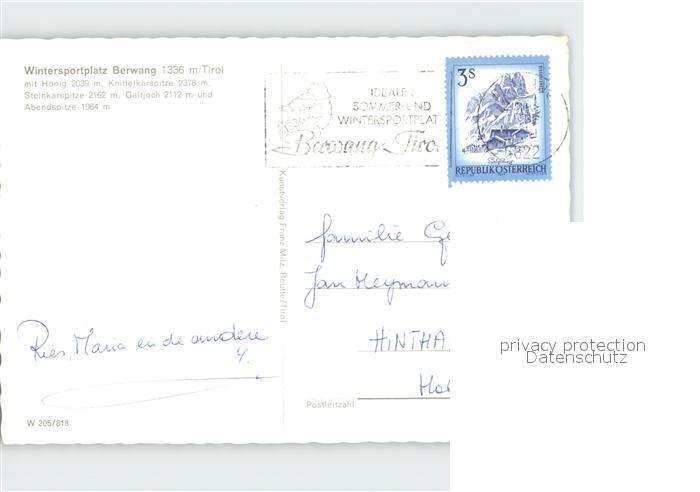 Wintersportplatz Berwang 1336 m/Tirol
mit Hönig 2039 m, Knittelkarspitze 2378 m,
Steinkarspitze 2162 m, Galtjoch 2112 m und
Abendspitze 1964 m
IDEALER
SOMMER- UND
WINTERSPORTPLAT
Berwang Tiro
3S
6622
REPUBLIK ÖSTERREICH
Kunstverlag Franz Milz, Reutte/Tirol
familie Ge
Jan Heyman
HINTHA
Ho
Postleitzahl
Ries, Maria en de andere
4.
W 205/818
privacy protection
Datenschutz